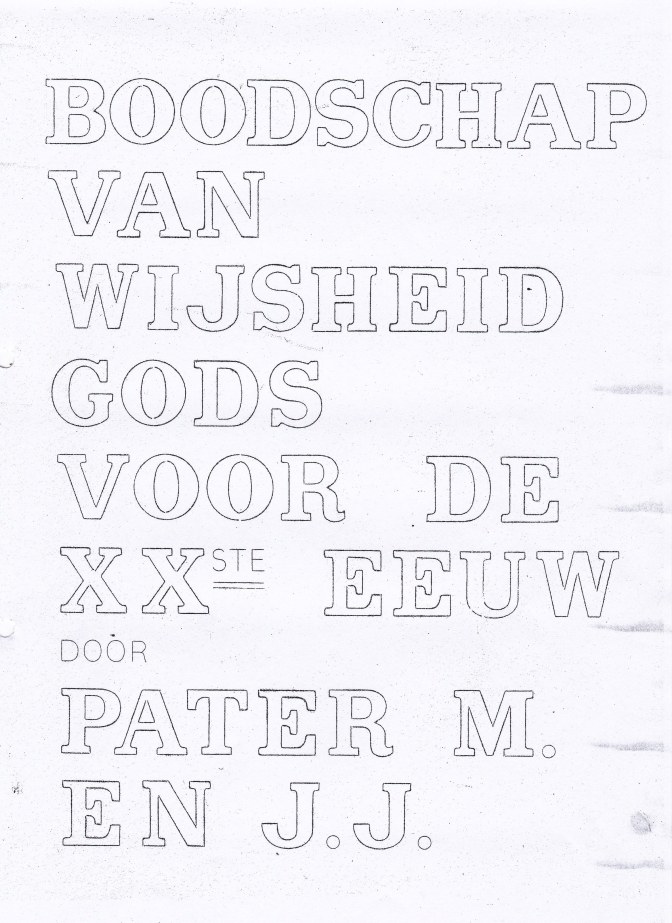 BOODSCHAP
VAN
WIJSHEID
GODS
VOOR DE
XXSTE EEUW
DOOR
PATER M.
EN J.J.